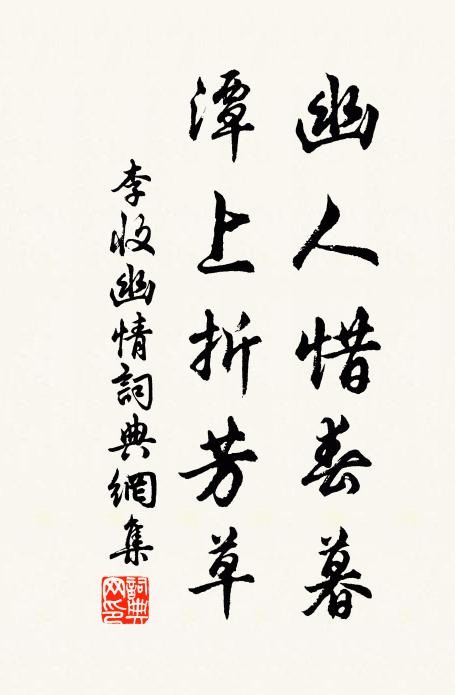 幽人惜春暮
潭上折芳草
李收幽情詞典網集
詞典网印